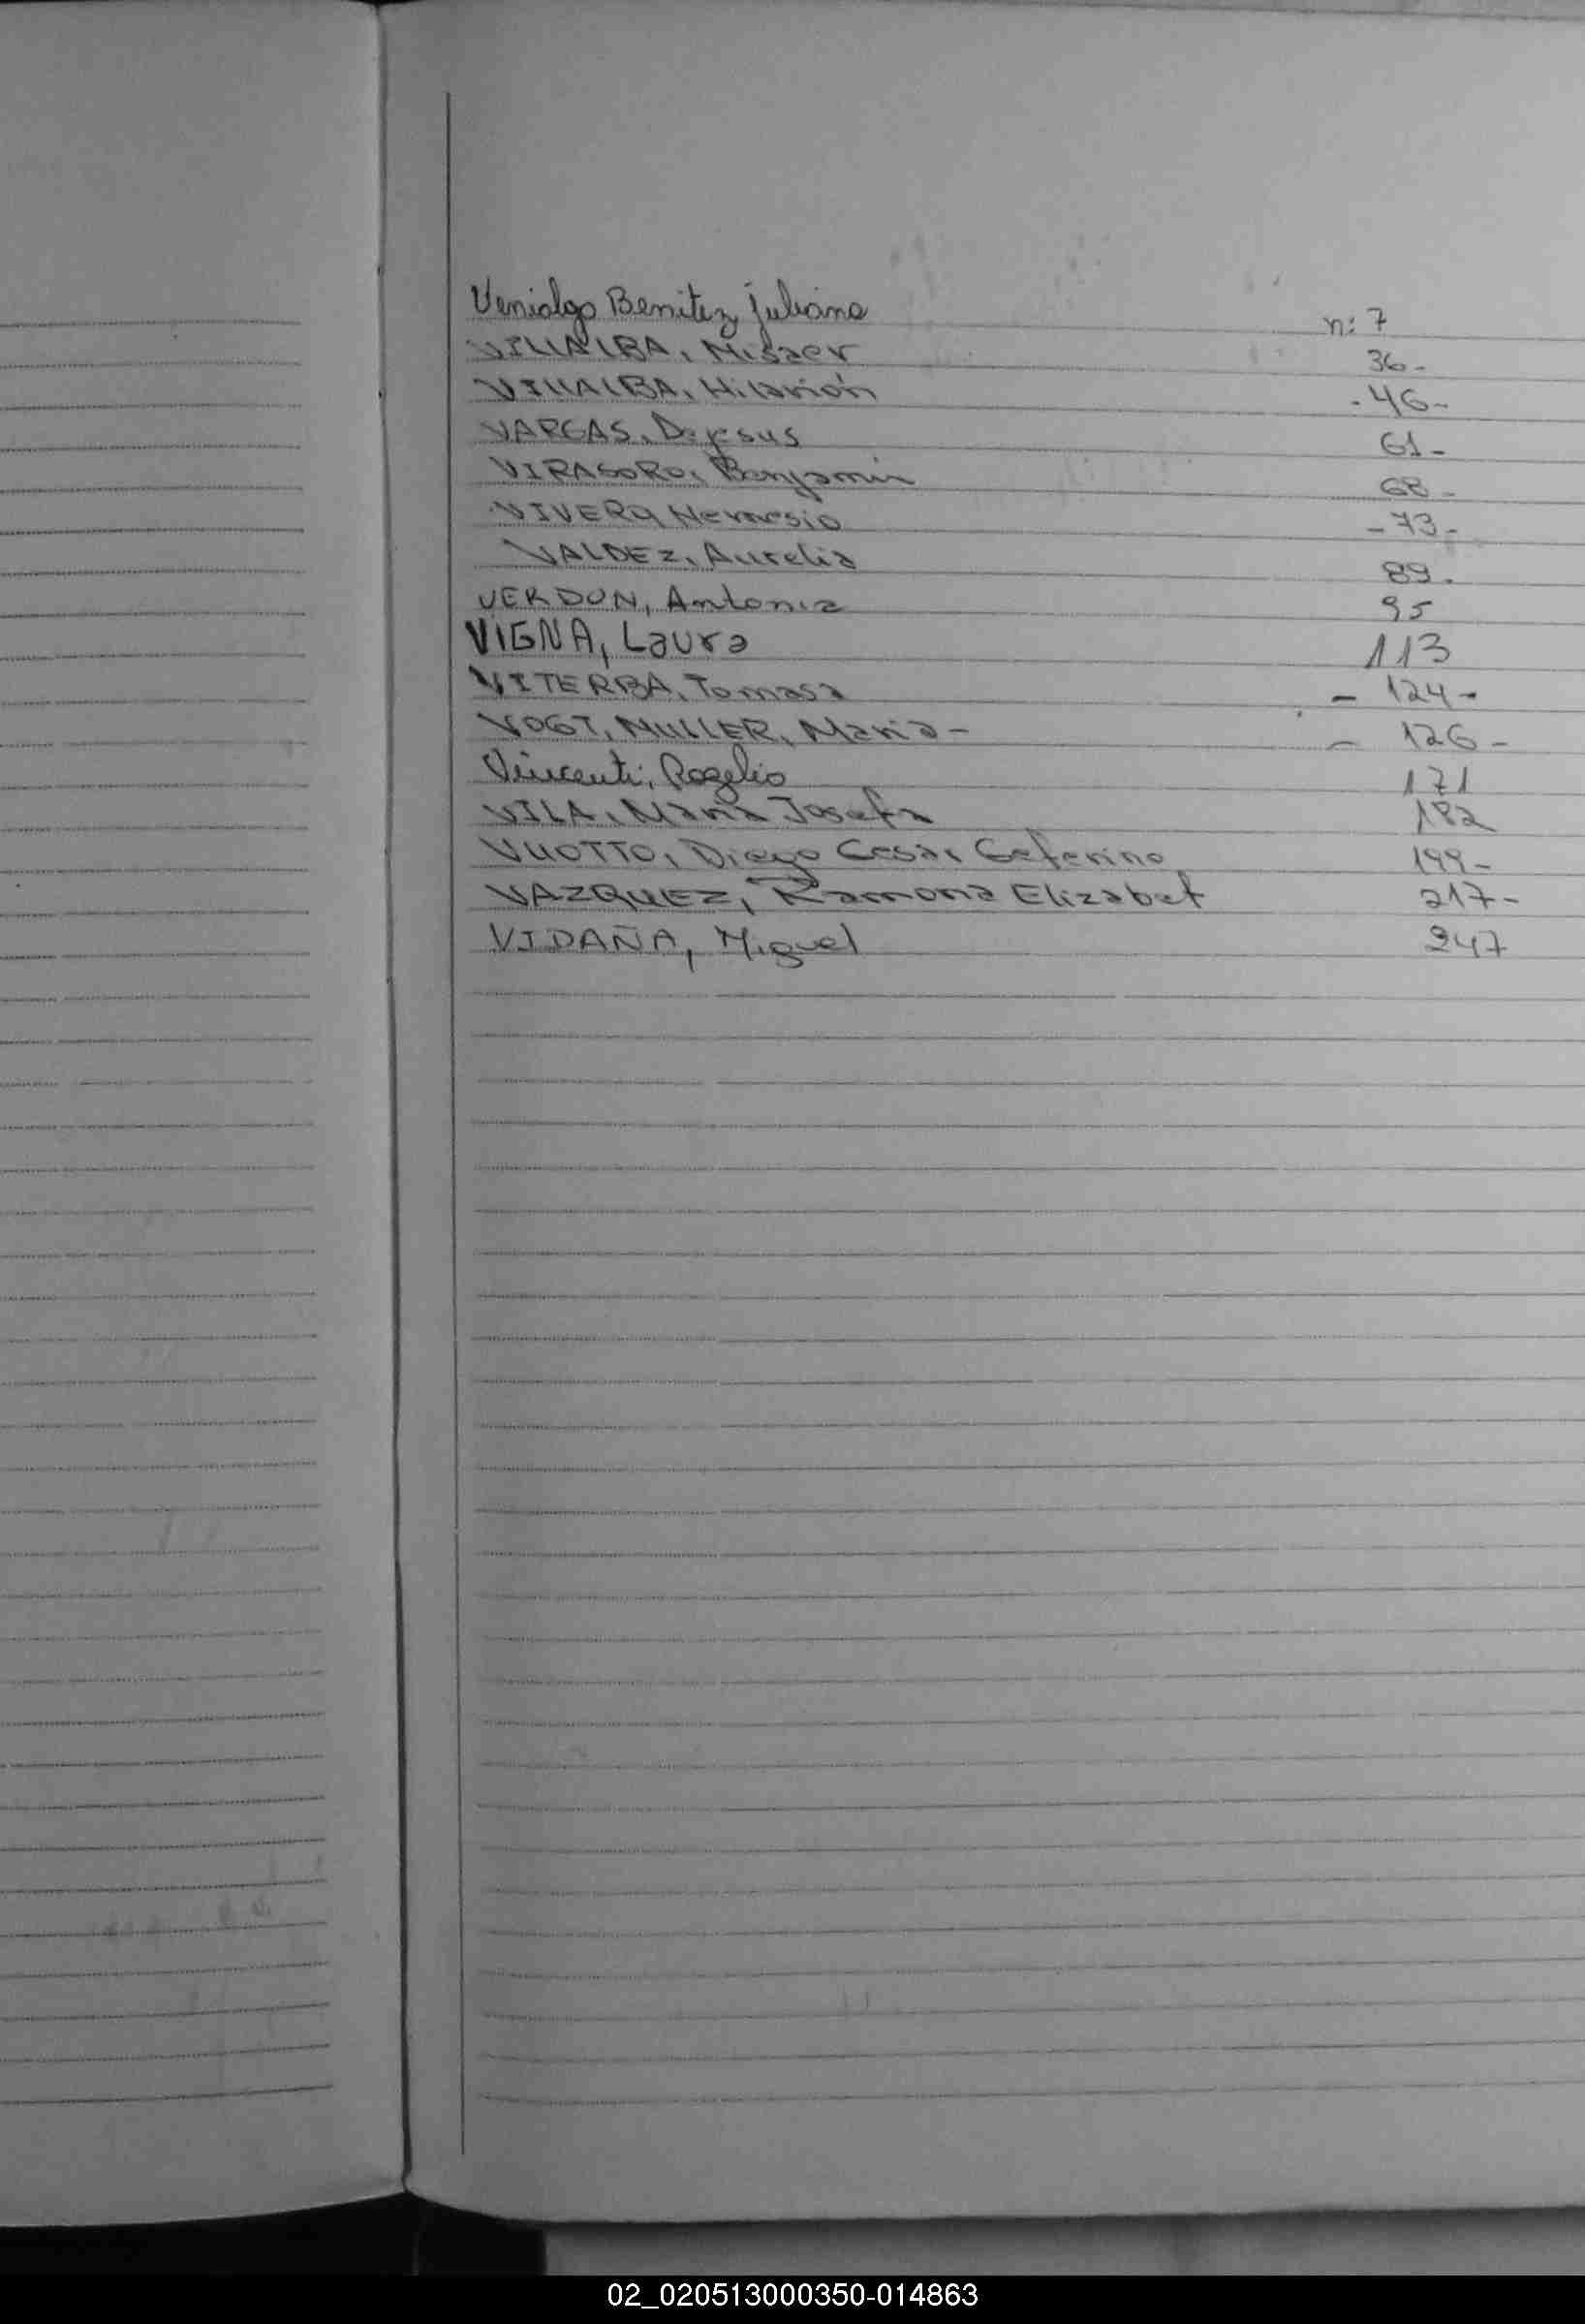 Venialgo Benitez juliana n: 7
VILLALBA, Misaer 36-
VILLALBA, Hilarión -46-
VARGAS, De Jesus 61-
VIRASORO, Benjamin 68-
VIVERO, Nemesio -73-
VALDEZ, Aurelia 89.
VERDUN, Antonia 95
VIGNA, Laura 113
VITERBA, Tomasa - 124-
VOGT, MULLER, Maria- - 126-
Vincenti, Rogelio 171
VILA, Maria Josefa 182
VUOTTO, Diego Cesar Ceferino 199-
VAZQUEZ, Ramona Elizabet 217-
VIDAÑA, Miguel 247
02_020513000350-014863